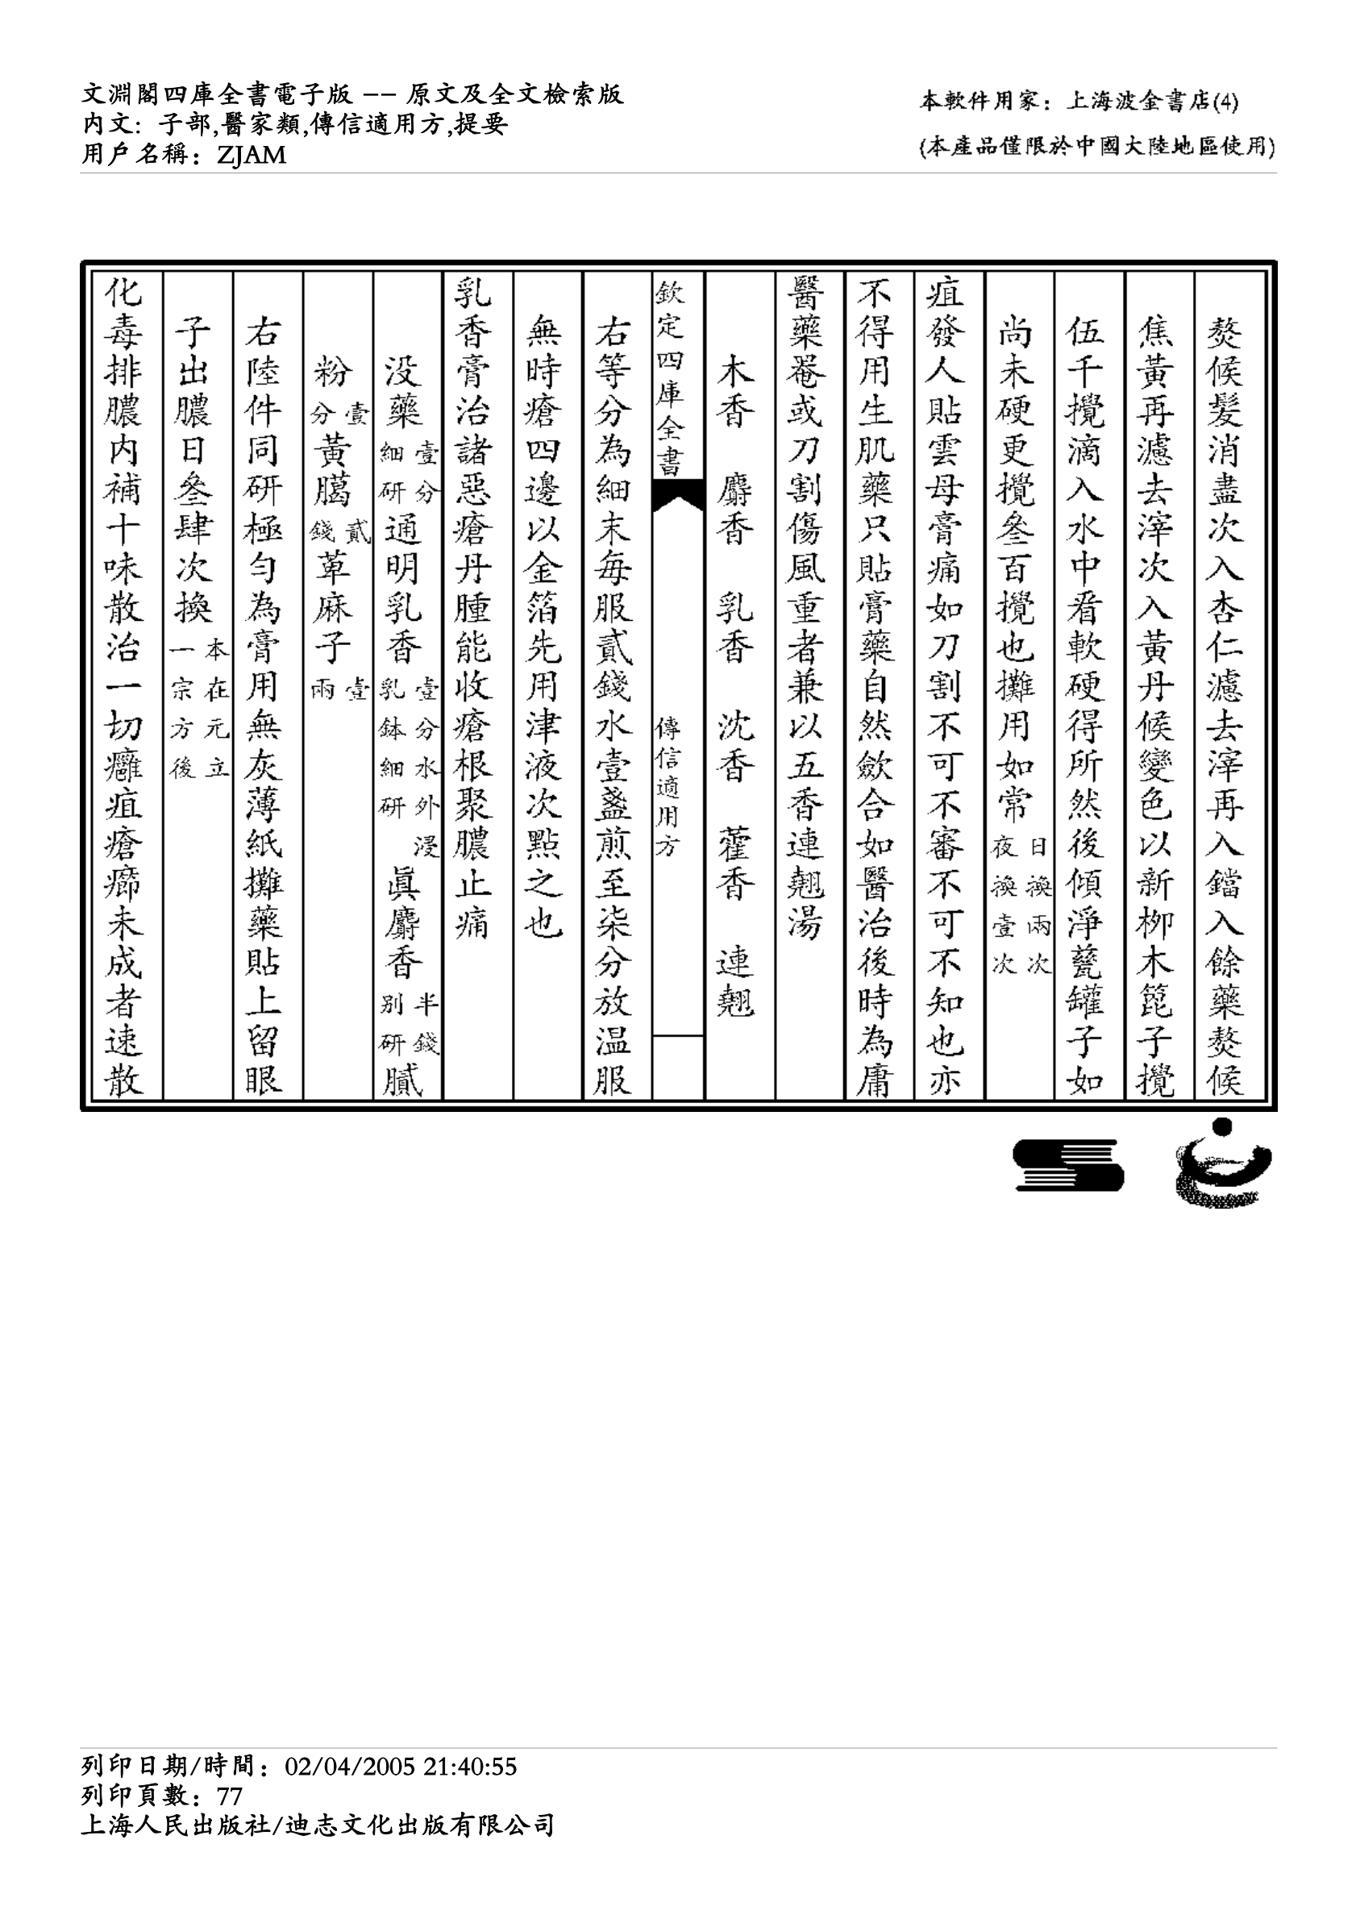 文淵閣四庫全書電子版 -- 原文及全文檢索版
內文: 子部,醫家類,傳信適用方,提要
用戶名稱: ZJAM
本軟件用家: 上海波金書店(4)
(本產品僅限於中國大陸地區使用)
熬候髮消盡次入杏仁濾去滓再入鐺入餘藥熬候
焦黃再濾去滓次入黃丹候變色以新柳木箆子攪
伍千攪滴入水中看軟硬得所然後傾淨甆罐子如
尚未硬更攪叁百攪也攤用如常日換兩次夜換壹次
疽發人貼雲母膏痛如刀割不可不審不可不知也亦
不得用生肌藥只貼膏藥自然歛合如醫治後時為庸
醫藥罨或刀割傷風重者兼以五香連翹湯
木香 麝香 乳香 沈香 藿香 連翹
欽定四庫全書 傳信適用方
右等分為細末每服貳錢水壹盞煎至柒分放温服
無時瘡四邊以金箔先用津液次點之也
乳香膏治諸惡瘡丹腫能收瘡根聚膿止痛
没藥壹分細研通明乳香壹分水外浸乳鉢細研眞麝香半錢别研膩
粉壹分黃臈貳錢萆麻子壹兩
右陸件同研極勻為膏用無灰薄紙攤藥貼上留眼
子出膿日叁肆次換本在元立一宗方後
化毒排膿内補十味散治一切癰疽瘡癤未成者速散
列印日期/時間: 02/04/2005 21:40:55
列印頁數: 77
上海人民出版社/迪志文化出版有限公司